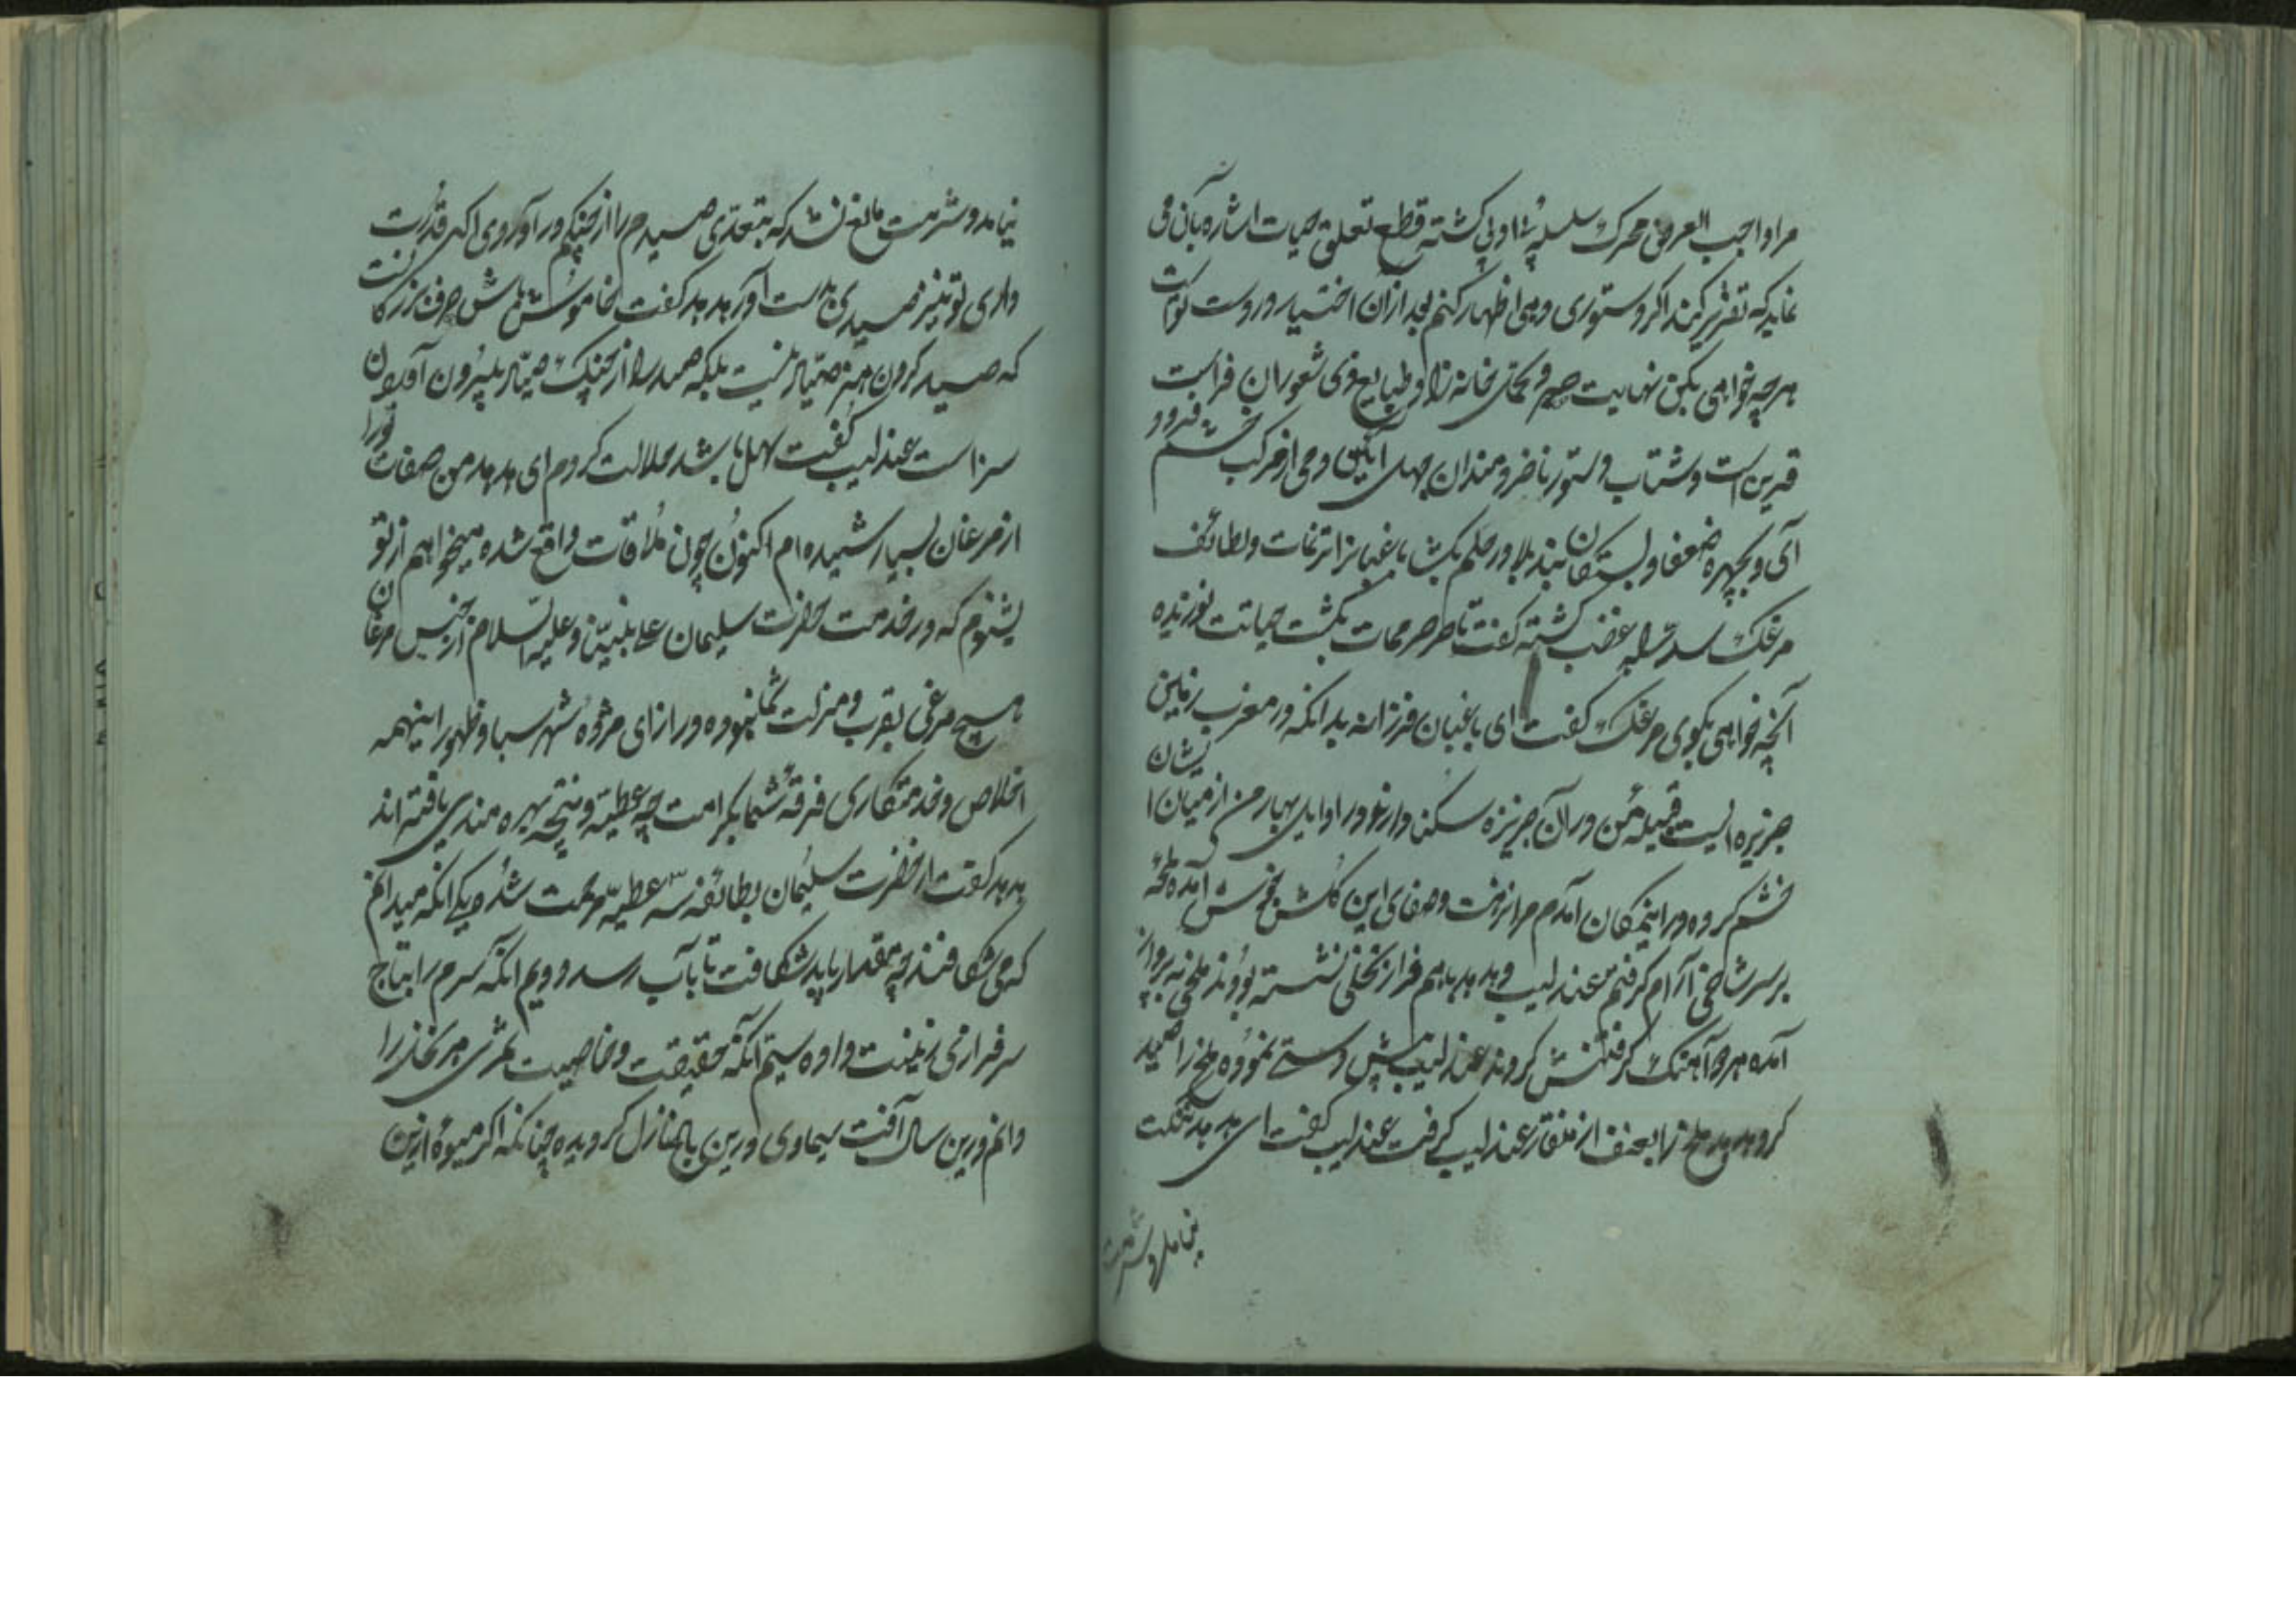 مرا واجب العرض محرک سلسله بی ادبی کشته قطع تعلق حیات اشاره بآن می
نماید که تقریر کند اگر دستوری دهی اظهار کنم بعد ازان اختیار در دست تو است
هرچه خواهی بکن نهایت صبر و تحمل خانه زاد طبایع ذی شعوران فراست
قرین است و شتاب دستور ناخردمندان جهل آیین دمی از مرکب خشم فرود
آی و بچهره ضعفا و بستکان بند بلا در حلم بکشا باغبان از ترنمات و لطائف
مرغک سد راه غضب کشته کفت تا صرصر ممات بکشت حیاتت نوزیده
آنچه خواهی بکوی مرغک کفت ای باغبان فرزانه بدانکه در مغرب زمین
جزیره ایست قبیله من در آن جزیره سکنا دارند و در اوایل بهار من از میان ایشان
خشم کرده در اینمکان آمدم مرا نزهت و صفای این کلشن خوش آمده لمحه
بر سر شاخی آرام کرفتم عندلیب و هدهد باهم فراز نخلی نشسته بودند ملخی به پرواز
آمده هر دو آهنک کرفتنش کردند عندلیب پیش دستی نموده ملخ را صید
کرد هدهد ملخ را بعنف از منقار عندلیب کرفت عندلیب کفت ای هدهد ننکت
نیامد و شرمت
نیامد و شرمت مانع نشد که بتعدی صیدم را از چنکم در آوردی اکر قدرت
داری تو نیز صیدی بدست آور هدهد کفت خاموش باش حرف بزرکانست
که صید کردن هنر صیاد نیست بلکه صید را از چنک صیاد بیرون آوردن
سزاست عندلیب کفت سهل باشد حلالت کردم ای هدهد من صفات تو را
از مرغان بسیار شنیده ام اکنون چون ملاقات واقع شده میخواهم از تو
بشنوم که در خدمت حضرت سلیمان علی نبینا و علیه السلام از جنس مرغان
هیچ مرغی بقرب و منزلت شما نبوده در ازای مژده شهر سبا و ظهور اینهمه
اخلاص و خدمتکاری فرقه شما بکرامت چه عطیه و نتیجه بهره مندی یافته اند
هدهد کفت از حضرت سلیمان بطائفه سه عطیه مرحمت شده یکی آنکه میدانم
که می شکافند چه مقدار باید شکافت تا بآب رسد دویم آنکه سرم را بتاج
سرفرازی زینت داده سیم آنکه حقیقت و خاصیت ثمری هر نخل را
دانم درین سال آفت سماوی درین باغ نازل کردیده چنانکه اکر میوه ازین